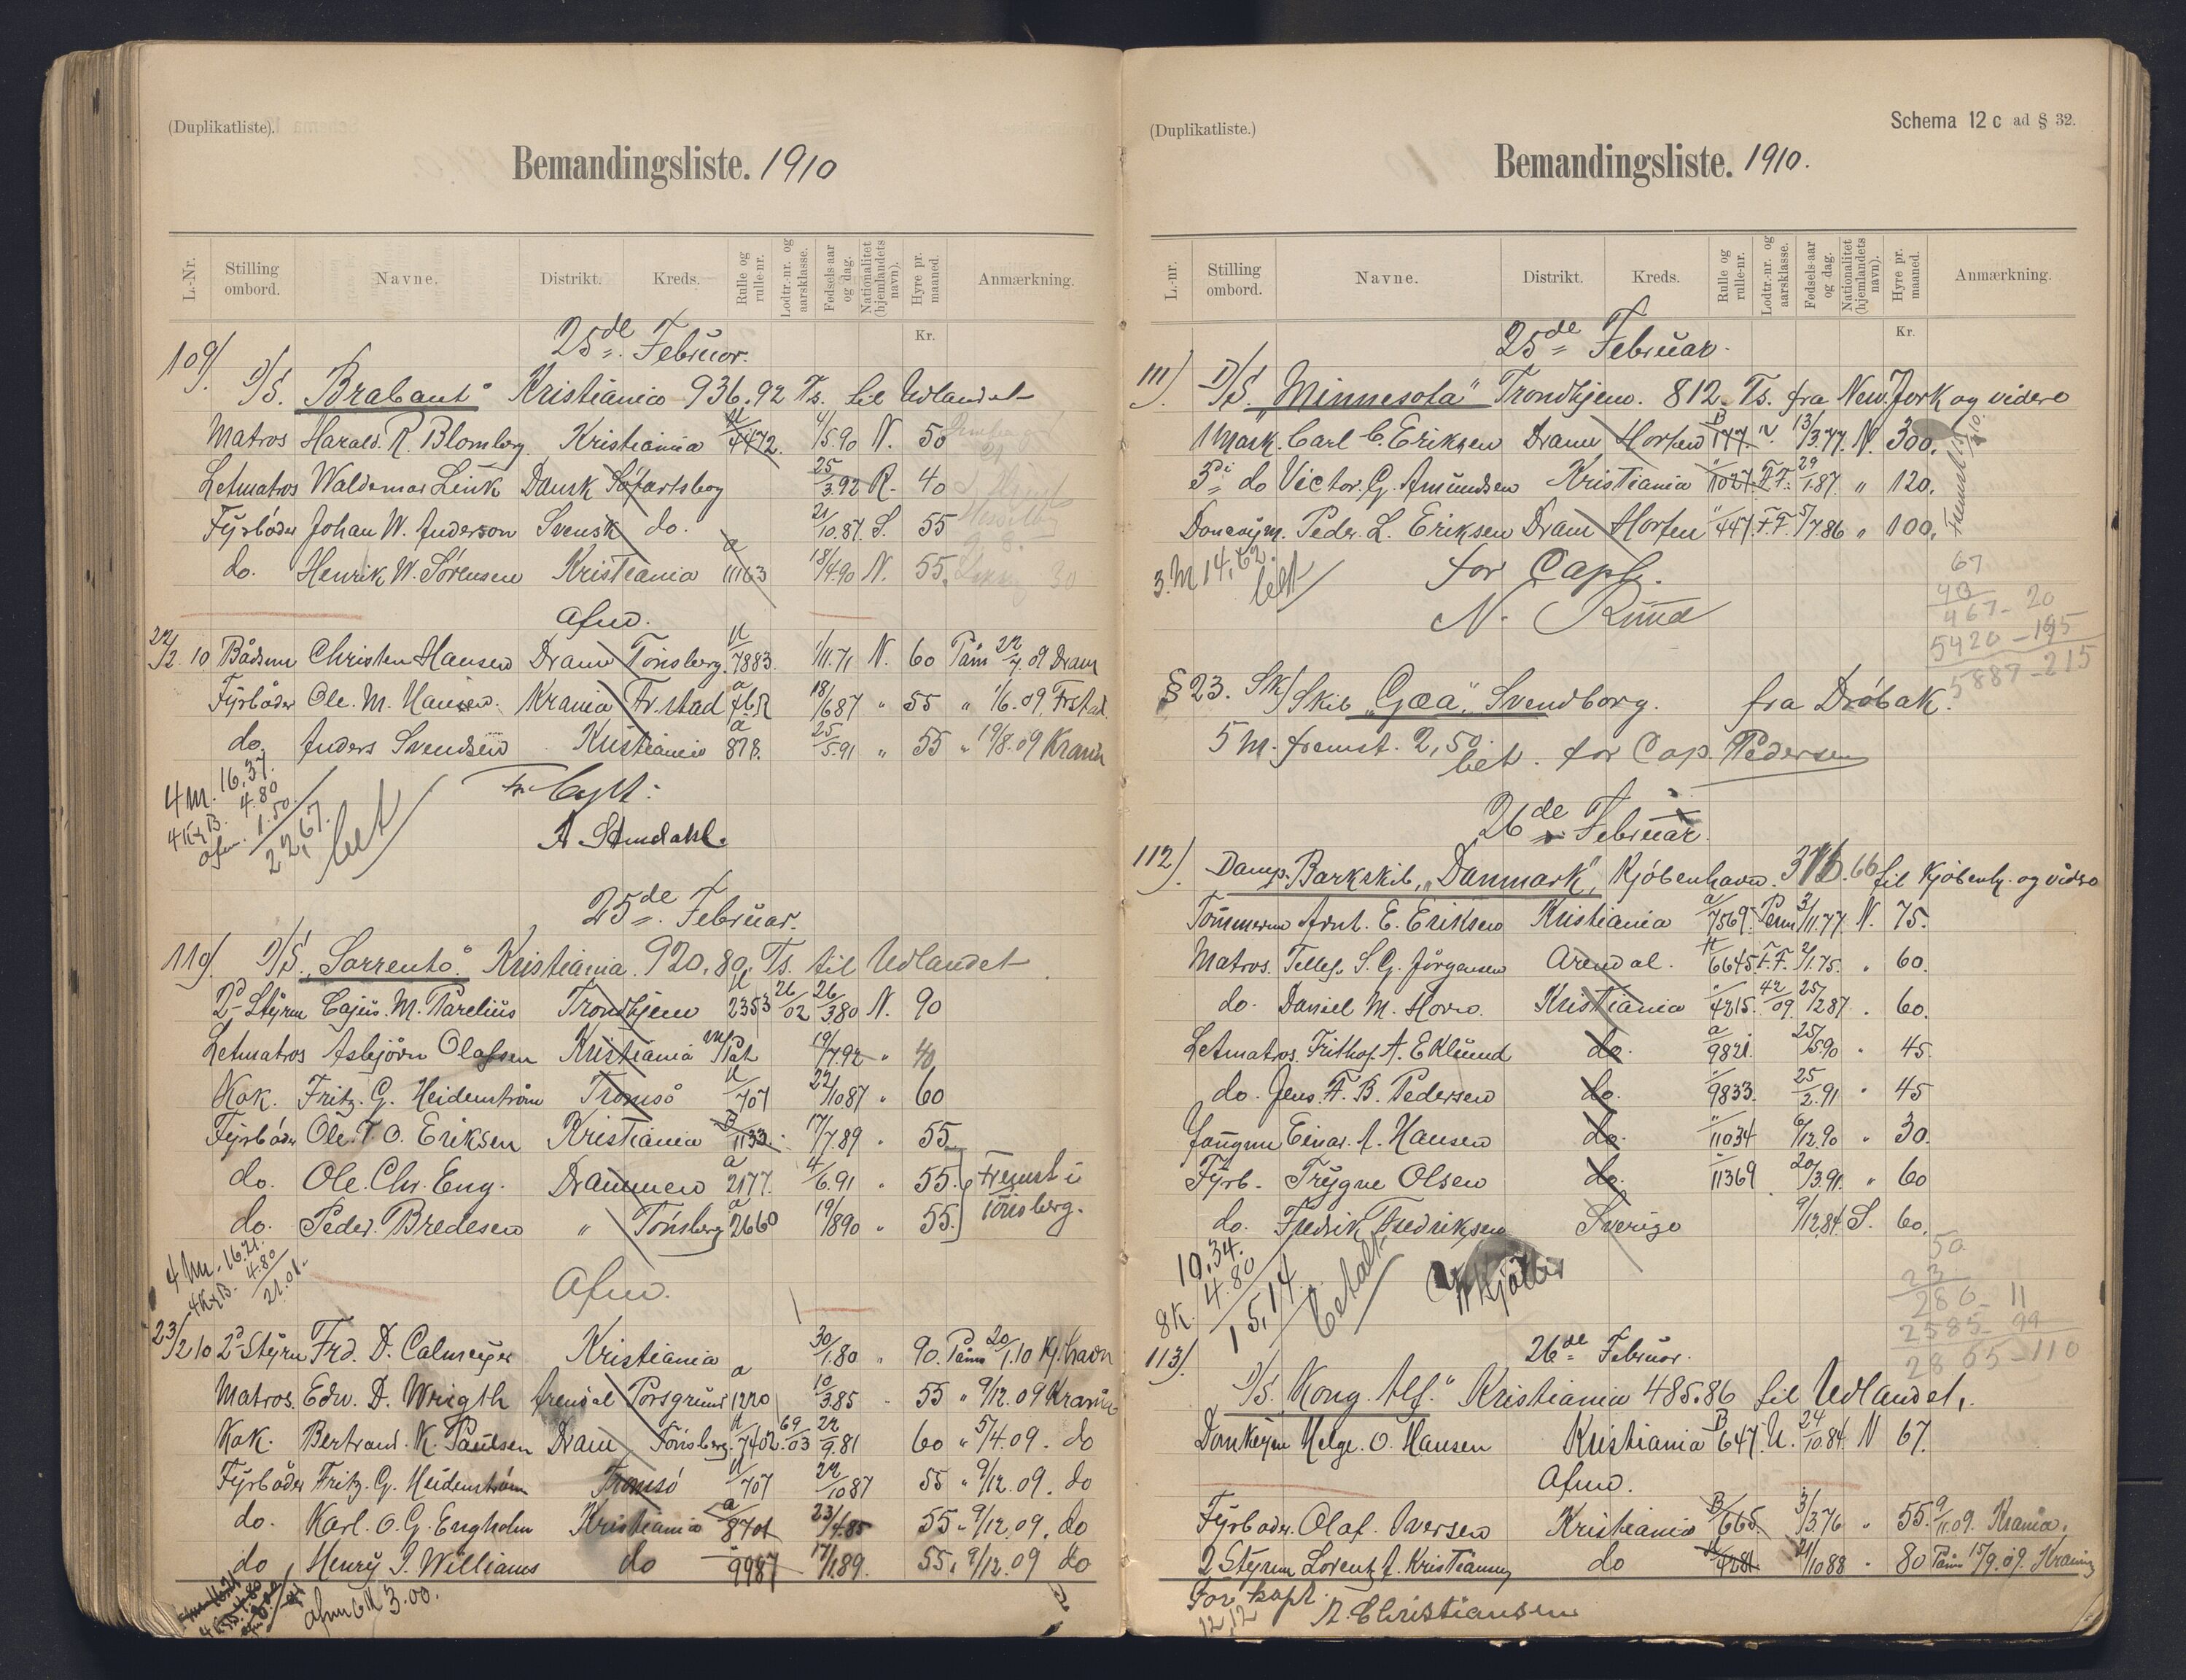 (Duplikatliste).
Bemandingsliste. 1910
L.-Nr. Stilling ombord. Navne. Distrikt. Kreds. Rulle og rulle-nr. Lodtr.-nr. og aarsklasse. Fødsels-aar og dag. Nationalitet (hjemlandets navn). Hyre pr. maaned. Anmærkning.
Kr.
25de Februar.
109). D/S. "Brabant" Kristiania 936.92 Ts. til Udlandet
Matros Harald. R. Blomberg Kristiania 4472. 4/5.90 N. 50
Letmatros Waldemar Link Dansk Søfartsbog 25/3.92 R. 40
Fyrbøder Johan W. Anderson Svensk do. 21/10.87. S. 55
do. Henrik W. Sørensen Kristiania a 11163 18/4.90 N. 55.
afm.
22/2.10 Bådsm Christen Hansen Dram Tønsberg. 7883. 1/11.71 N. 60 Påm 22/7.09 Dram
Fyrbøder Ole. M. Hansen. Krania Fr.stad a 18/6 87 " 55 " 1/6.09. Frstad.
do. Anders Svendsen Kristiania a 878. 25/5.91 " 55 " 19/8.09 Krania
4 M. 16.37.
4 K&B. 4.80
afm. 1.50.
22,67.
bet
A Stendahl.
25de Februar.
110). D/S. "Sorrento" Kristiania. 920.80. Ts. til Udlandet
2d Styrm Cajus. M. Parelius Trondhjem 2353 26/02 26/3 80 N. 90
Letmatros Asbjørn Olafsen Kristiania 19/7.92 " 40
Kok. Fritz. G. Heidenstrøm Tromsø 707 22/10 87 " 60
Fyrbøder Ole. T. O. Eriksen Kristiania B 1133. 17/7.89 " 55.
do. Ole. Chr. Eng. Drammen a 2177. 4/6.91 " 55. Fremst i
do. Peder. Bredesen " Tønsberg a 2660 19/8 90 " 55. Tønsberg.
4 M. 16.21.
4 K&B. 4.80
21.01.
Afm.
23/2 10 2d Styrm Frd. D. Calmeyer Kristiania 30/1.80 " 90. Påm 20/1.10 Kj.havn
Matros. Edw. D. Wrigth Arendal Porsgrund a 1220 10/3.85 " 55 " 9/12.09 Krania
Kok. Bertrand. K. Paulsen Dram Tønsberg. 7402. 69/03 22/9.81 60 " 5/4.09. do
Fyrbøder Fritz. G. Heidenstrøm Tromsø 707 22/10 87 55 " 9/12.09. do
do. Karl. O. G. Engholm Kristiania a 8701 23/4.85 55 " 9/12.09. do
do Henry J. Williams do 9987 17/1.89. 55. 9/12.09 do
afm 6 M 3.00.
(Duplikatliste.)
Schema 12 c ad § 32.
Bemandingsliste. 1910.
L.-nr. Stilling ombord. Navne. Distrikt. Kreds. Rulle og rulle-nr. Lodtr.-nr. og aarsklasse. Fødsels-aar og dag. Nationalitet (hjemlandets navn). Hyre pr. maaned. Anmærkning.
Kr.
25de Februar.
111). D/S. "Minnesota" Trondhjem. 812. Ts. fra New. York og videre
1 Mask. Carl C. Eriksen Dram Horten B 177. 13/3.77. N. 300.
3di do Victor. G. Amundsen Kristiania 1027. F.F. 29/1.87. " 120.
Donkeym. Peder. L. Eriksen Dram Horten 447. F.F. 5/7.86 " 100.
3. M 14,62.
bet
for Capt.
N. Rund
67
43
467 - 20
5420 - 195
5887 - 215
§ 23. Sk/Skib "Gæa" Svendborg. fra Drøbak.
5 M. fremst. 2,50.
bet. for Cap. Pedersen
26de Februar.
112). Damp. Barkskib, "Danmark", Kjøbenhavn. 66 til Kjøbenh. og videre
Tømmerm Arnt. E. Eriksen Kristiania a 7569. 3/11.77. N. 75.
Matros. Tellef. S. G. Jørgensen Arendal. 6645. F.F. 2/1.75. " 60.
do. Daniel M. Horn. Kristiania 4215. 42/09. 25/12 87 " 60.
Letmatros. Frithof. A. Eklund do. a 9821. 25/5.90 " 45
do. Jens. F. B. Pedersen do. 9833. 25/2.91 " 45
Jungm Einar. A. Hansen do. 11034 6/12.90 " 30.
Fyrb. Trygve Olsen do. 11369 20/3.91. " 60
do. Fredrik Fredriksen Sverige 9/12.84. S. 60.
10.34.
8 K. 4.80
15,14.
betalt
50
23
280 11
2585 99
2865 - 110
113). 26de Februar.
D/S. "Kong. Alf." Kristiania 485.86 til Udlandet.
Donkeym Helge. O. Hansen Kristiania B 647. U. 24/10.84. N 67.
Afm.
Fyrbøder. Olaf. Iversen Kristiania B 665. 3/3.76 " 55. 9/11.09. Krania.
2 Styrm Lorentz A. Kristiansen do 4281 21/10 88 " 80 Påm 15/9.09. Krania
For kapt.
12,12 A. Christiansen